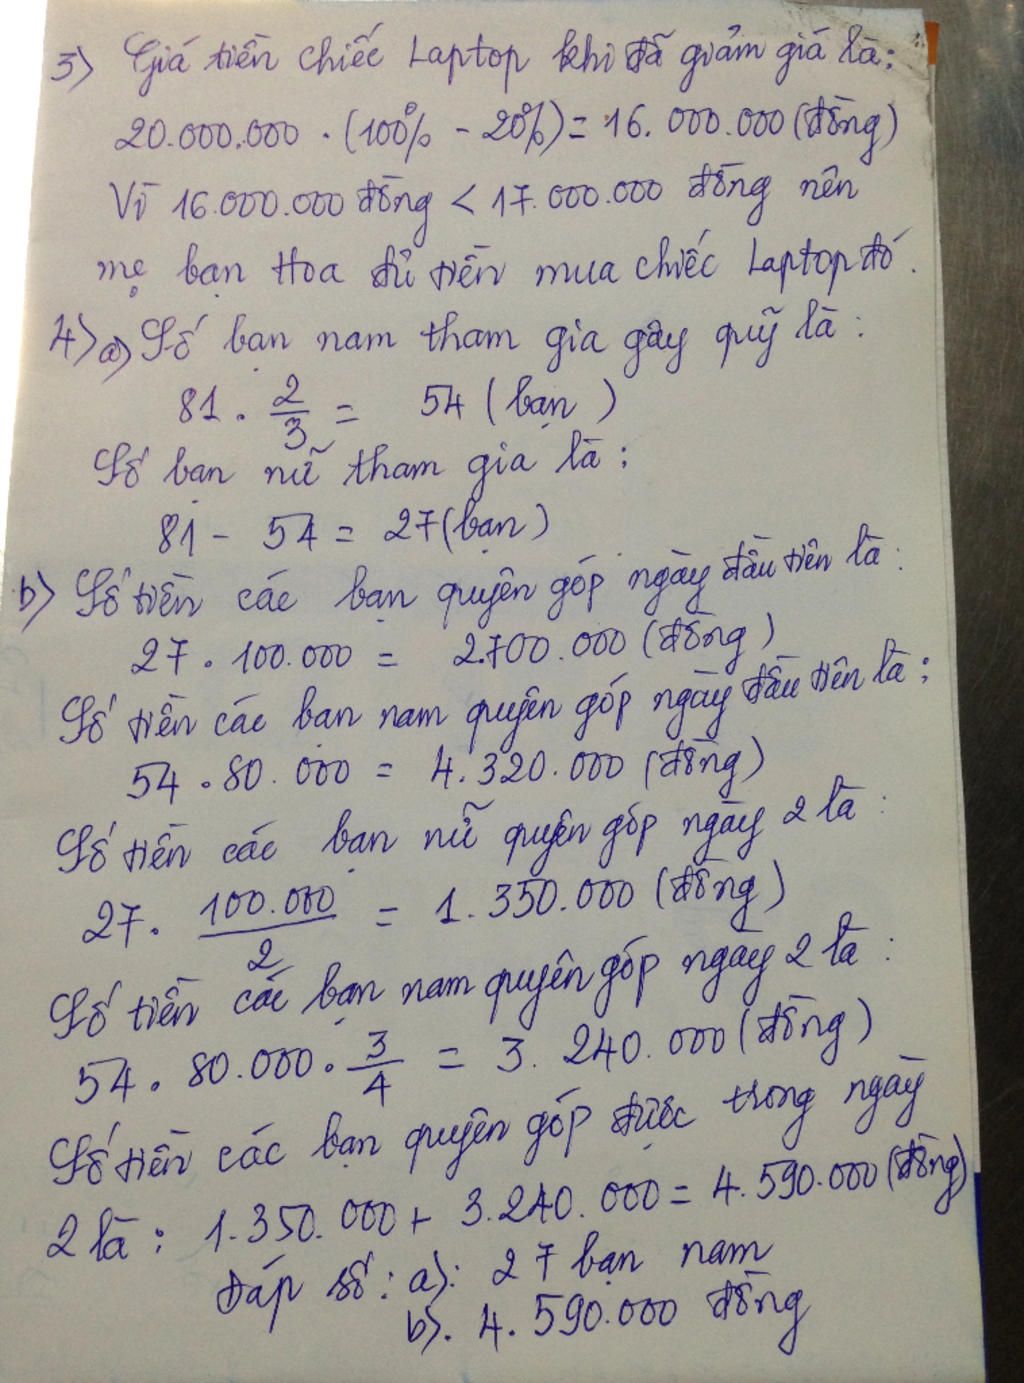 3) Giá tiền chiếc Laptop khi đã giảm giá là:
20.000.000 . (100% - 20%) = 16.000.000 (đồng)
Vì 16.000.000 đồng < 17.000.000 đồng nên
mẹ bạn Hoa đủ tiền mua chiếc Laptop đó.
4) a) Số bạn nam tham gia gây quỹ là:
81 . 2/3 = 54 (bạn)
Số bạn nữ tham gia là:
81 - 54 = 27 (bạn)
b) Số tiền các bạn quyên góp ngày đầu tiên là:
27 . 100.000 = 2.700.000 (đồng)
Số tiền các bạn nam quyên góp ngày đầu tiên là:
54 . 80.000 = 4.320.000 (đồng)
Số tiền các bạn nữ quyên góp ngày 2 là:
27 . 100.000/2 = 1.350.000 (đồng)
Số tiền các bạn nam quyên góp ngày 2 là:
54 . 80.000 . 3/4 = 3.240.000 (đồng)
Số tiền các bạn quyên góp được trong ngày
2 là: 1.350.000 + 3.240.000 = 4.590.000 (đồng)
Đáp số: a): 27 bạn nam
b). 4.590.000 đồng